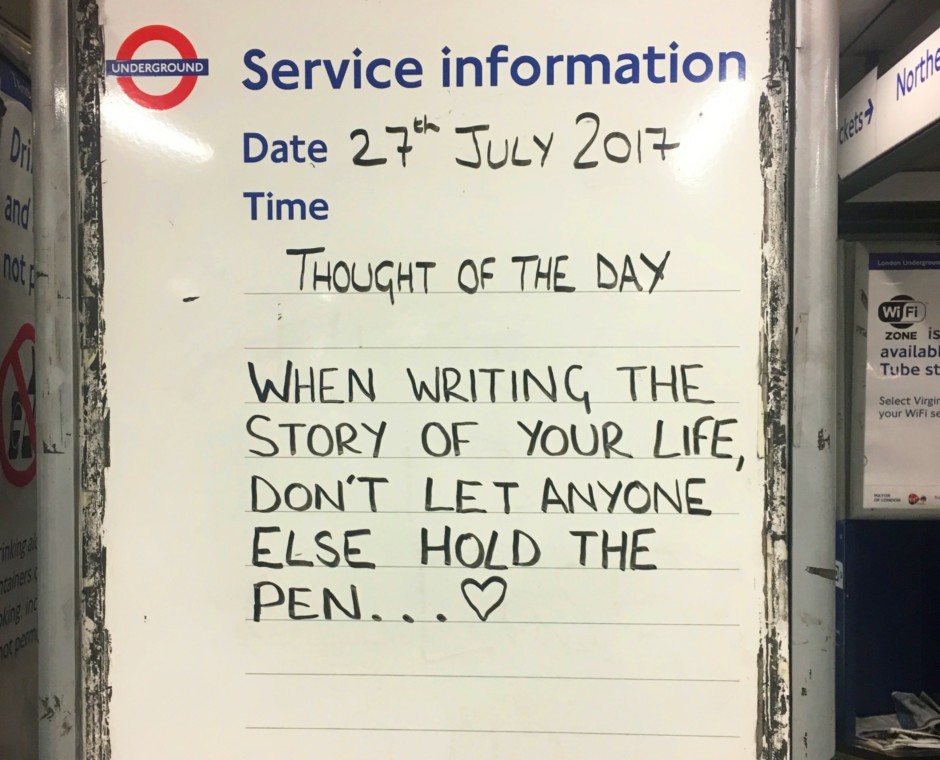 UNDERGROUND
Service information
Date 27th JULY 2017
Time
THOUGHT OF THE DAY
WHEN WRITING THE
STORY OF YOUR LIFE,
DON'T LET ANYONE
ELSE HOLD THE
PEN...♡
and
not
Northe
London Underground
WiFi
ZONE is
Tube st
Select Virgin
your WiFi se
MAYOR
OF LONDON